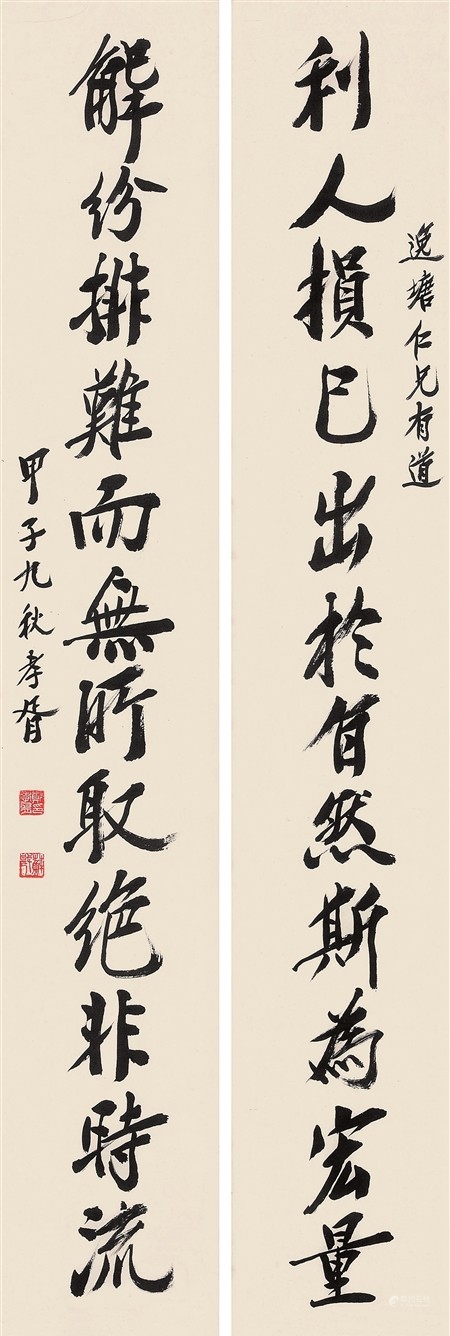 逸塘仁兄有道
利人損己出於自然斯為宏量
解紛排難而無所取絶非時流
甲子九秋孝胥